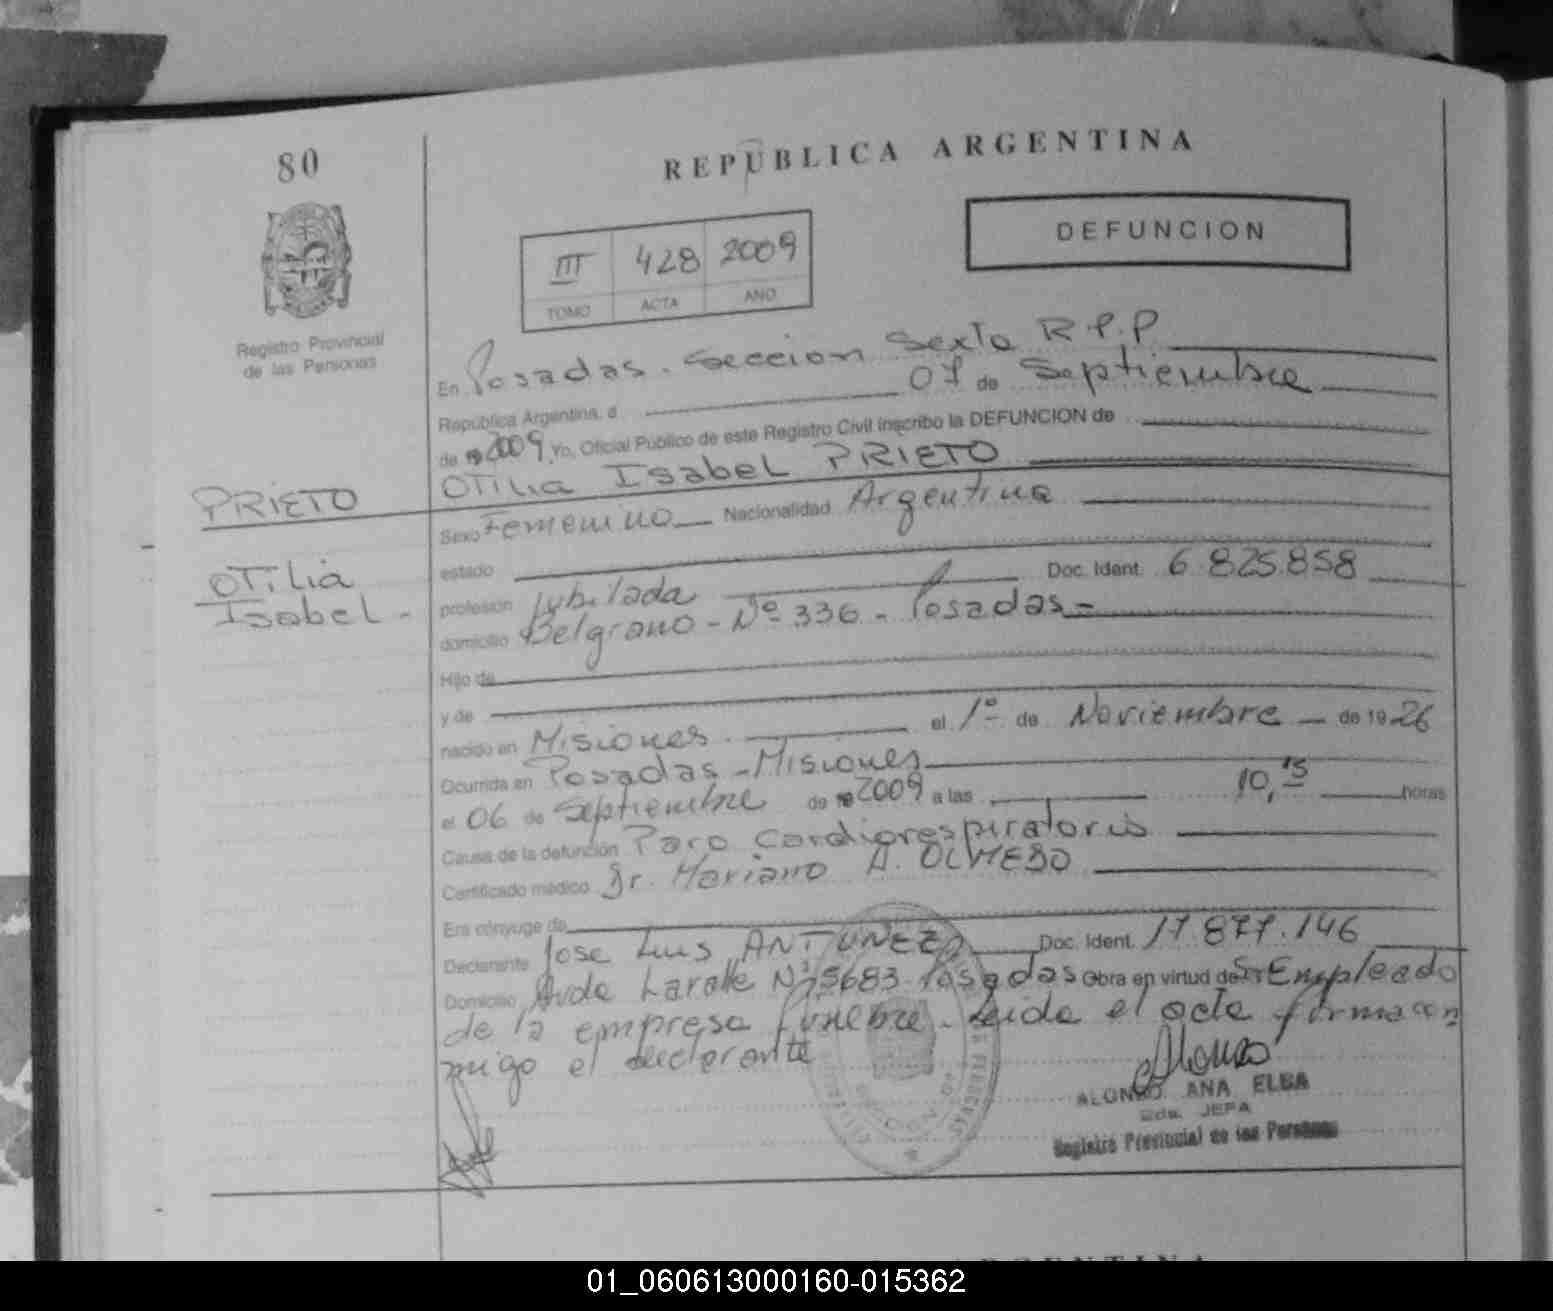 80
REPUBLICA ARGENTINA
DEFUNCION
III 428 2009
TOMO ACTA AÑO
Registro Provincial
de las Personas
En Posadas. Seccion Sexta R.P.P
República Argentina, a 07 de Septiembre
de 19 2009 Yo, Oficial Público de este Registro Civil inscribo la DEFUNCION de
OTILIA ISABEL PRIETO
PRIETO
OTILIA
Isabel -
Sexo Femenino Nacionalidad Argentina
estado
profesión Jubilada Doc. Ident. 6.825.858
domicilio Belgrano - Nº 336 - Posadas -
Hijo de
y de
nacido en Misiones el 1º de Noviembre de 1926
Ocurrida en Posadas - Misiones
el 06 de Septiembre de 19 2009 a las 10,15 horas
Causa de la defunción Paro cardiorespiratorio
Certificado médico Dr. Mariano A. OLMEDO
Era cónyuge de
Declarante Jose Luis ANTUNEZ Doc. Ident. 17.877.146
Domicilio Avda Nº 5683 Posadas Obra en virtud de Empleado
de la empresa funebre. Leida el acta firma con
migo el declarante
Alonso
ALONSO ANA ELBA
2da. JEFA
Registro Provincial de las Personas
ARGENTINA
01_060613000160-015362